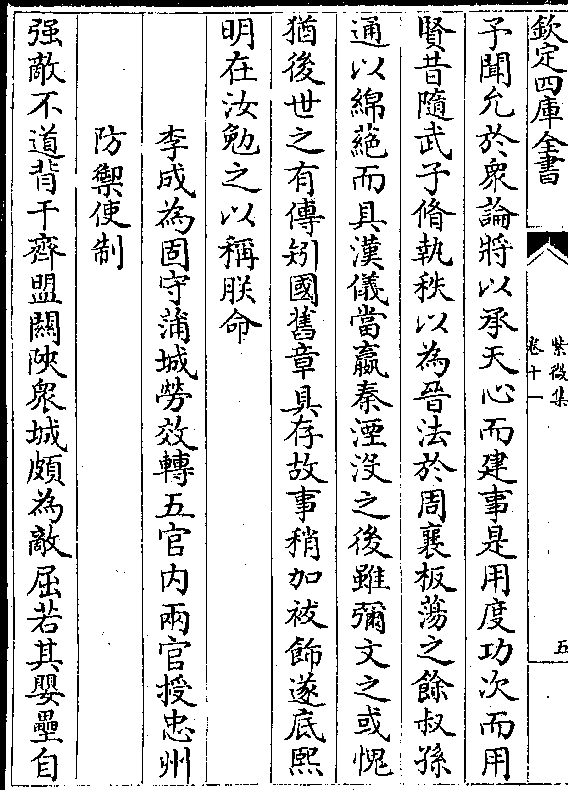 欽定四庫全書
紫微集
卷十一
五
予聞允於衆論將以承天心而建事是用度功次而用
賢昔隨武子脩執秩以為晉法於周襄板蕩之餘叔孫
通以綿蕝而具漢儀當嬴秦湮沒之後雖彌文之或愧
猶後世之有傳矧國舊章具存故事稍加祓飾遂底熙
明在汝勉之以稱朕命
李成為固守蒲城勞效轉五官内兩官授忠州
防禦使制
强敵不道背干齊盟闞陜衆城頗為敵屈若其嬰壘自